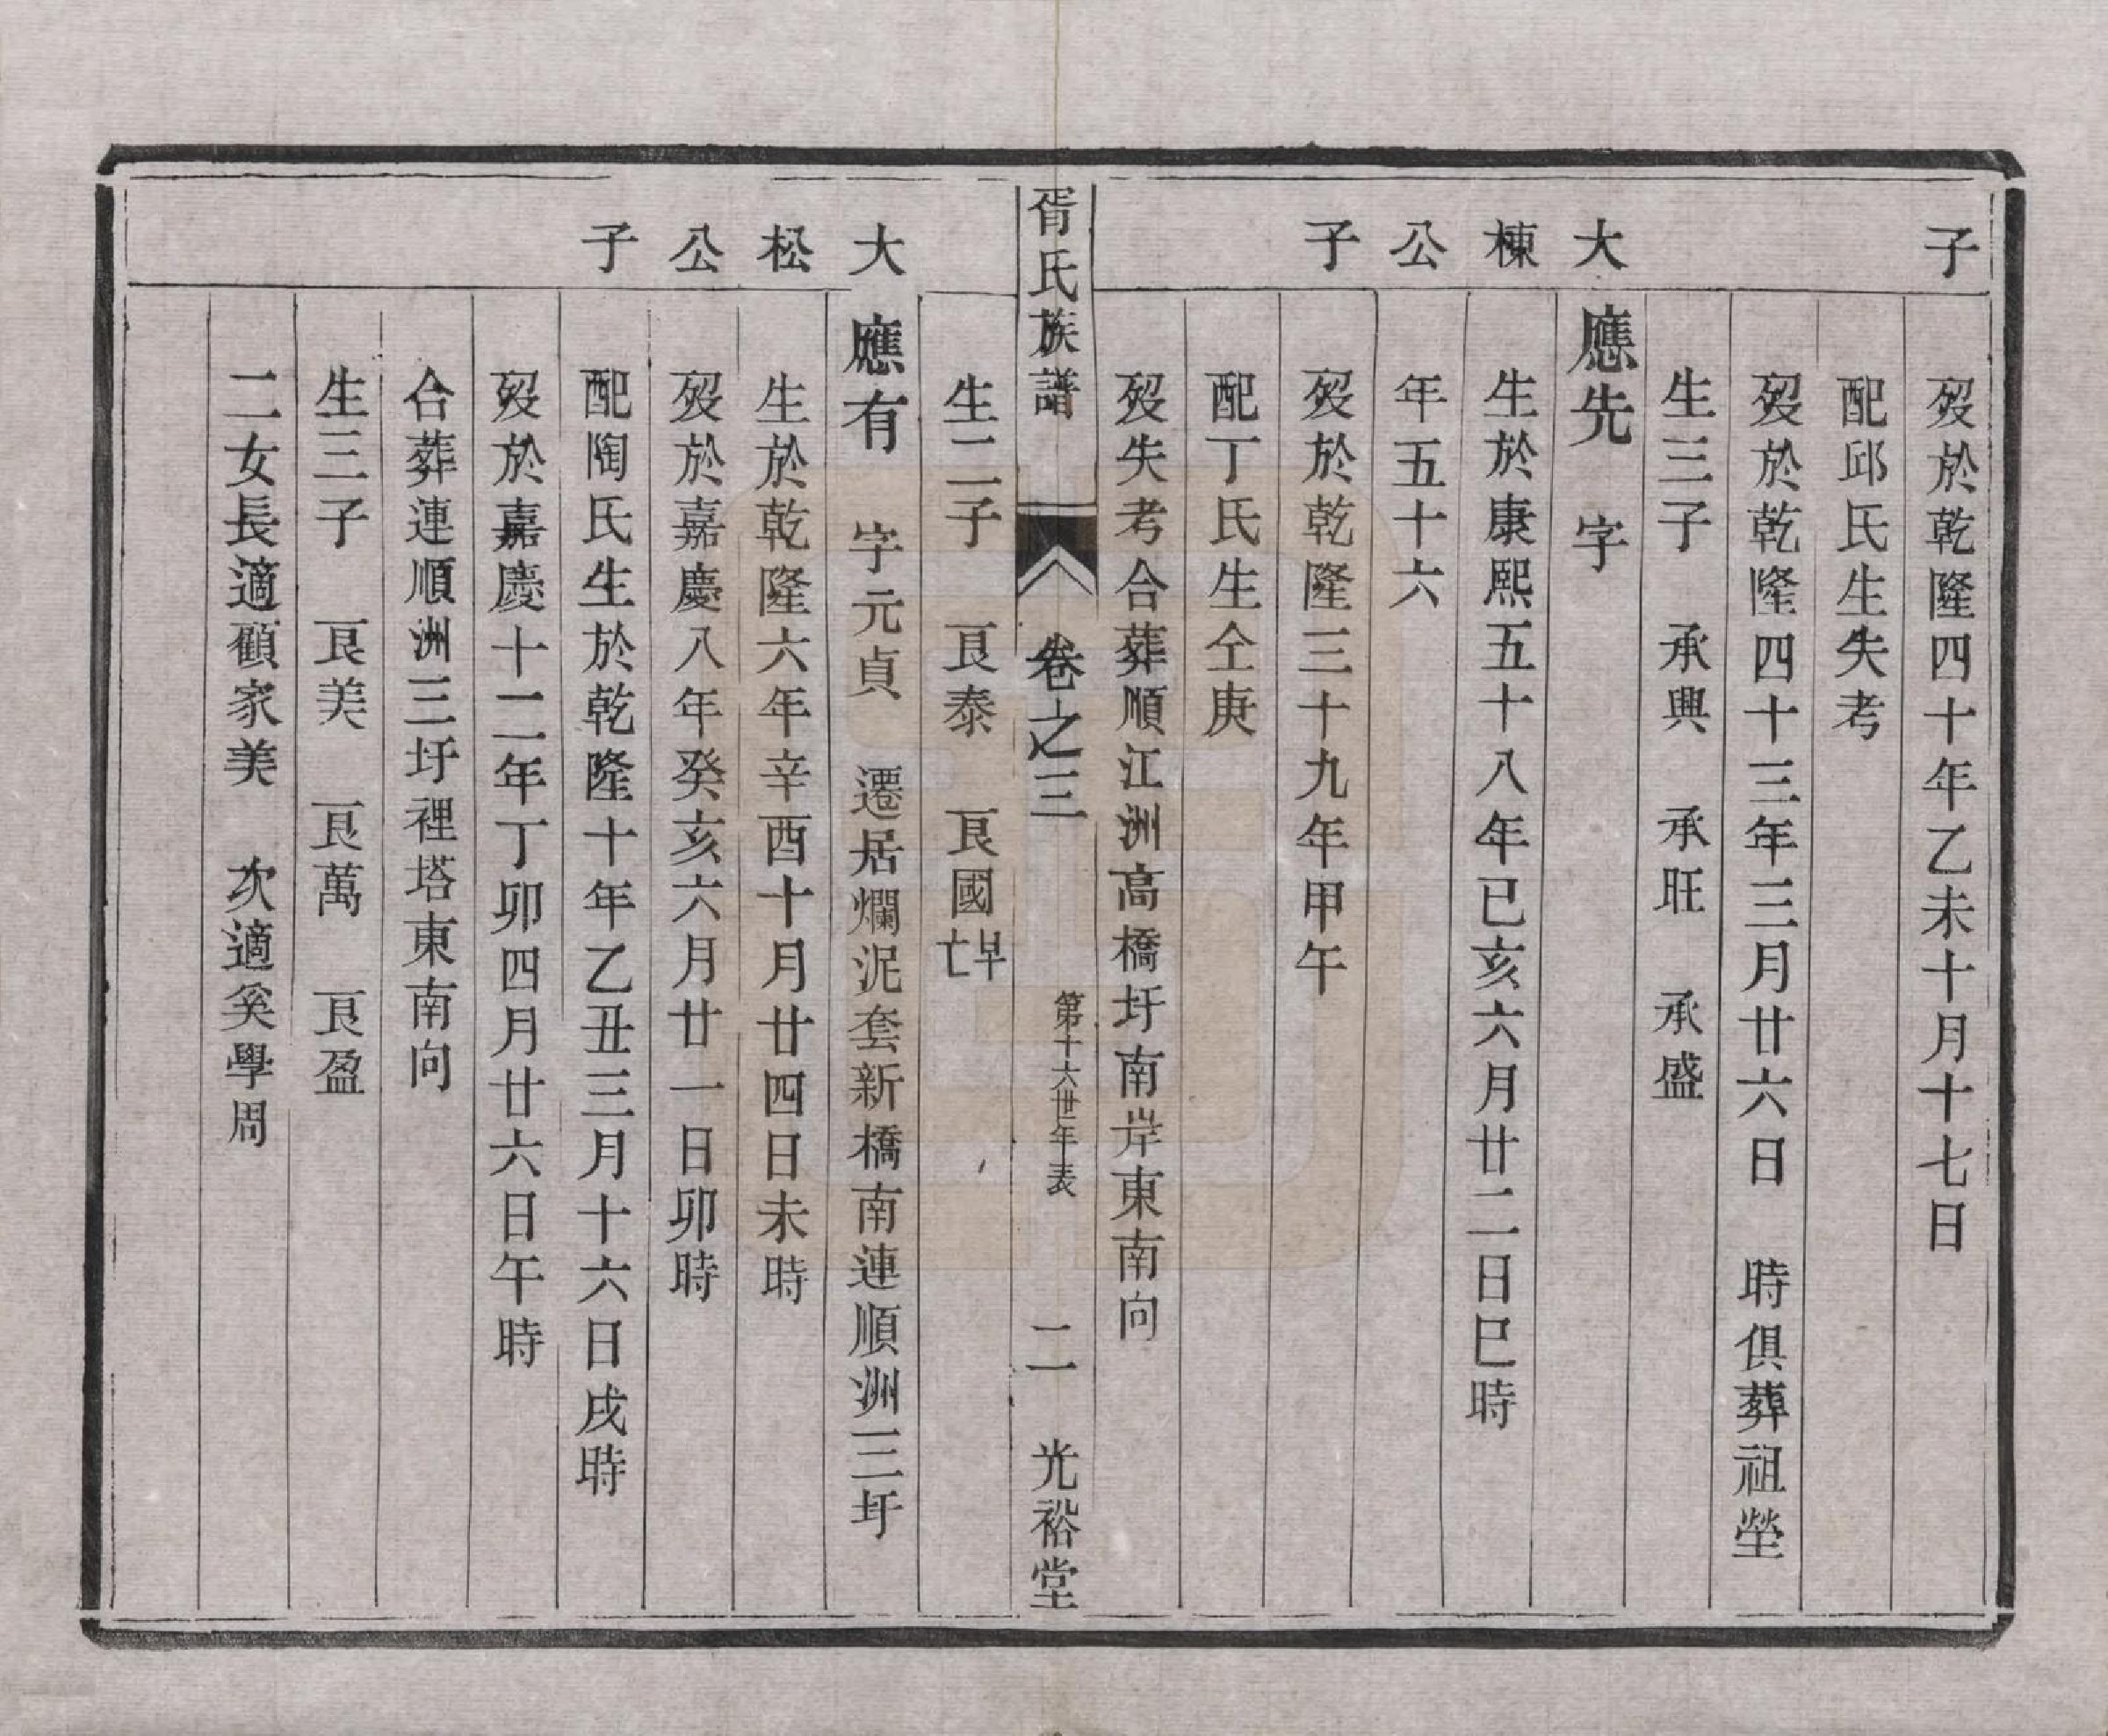 子
歿於乾隆四十年乙未十月十七日
配邱氏生失考
歿於乾隆四十三年三月廿六日　時俱葬祖塋
生三子　承興　承旺　承盛
大棟公子
應先　字
生於康熙五十八年已亥六月廿二日巳時
年五十六
歿於乾隆三十九年甲午
配丁氏生仝庚
歿失考合葬順江洲高橋圩南岸東南向
胥氏族譜　卷之三　第十六世年表　二　光裕堂
生二子　艮泰　艮國早亡
大松公子
應有　字元貞　遷居爛泥套新橋南連順洲三圩
生於乾隆六年辛酉十月廿四日未時
歿於嘉慶八年癸亥六月廿一日卯時
配陶氏生於乾隆十年乙丑三月十六日戌時
歿於嘉慶十二年丁卯四月廿六日午時
合葬連順洲三圩裡塔東南向
生三子　艮美　艮萬　艮盈
二女長適顧家美　次適奚學周